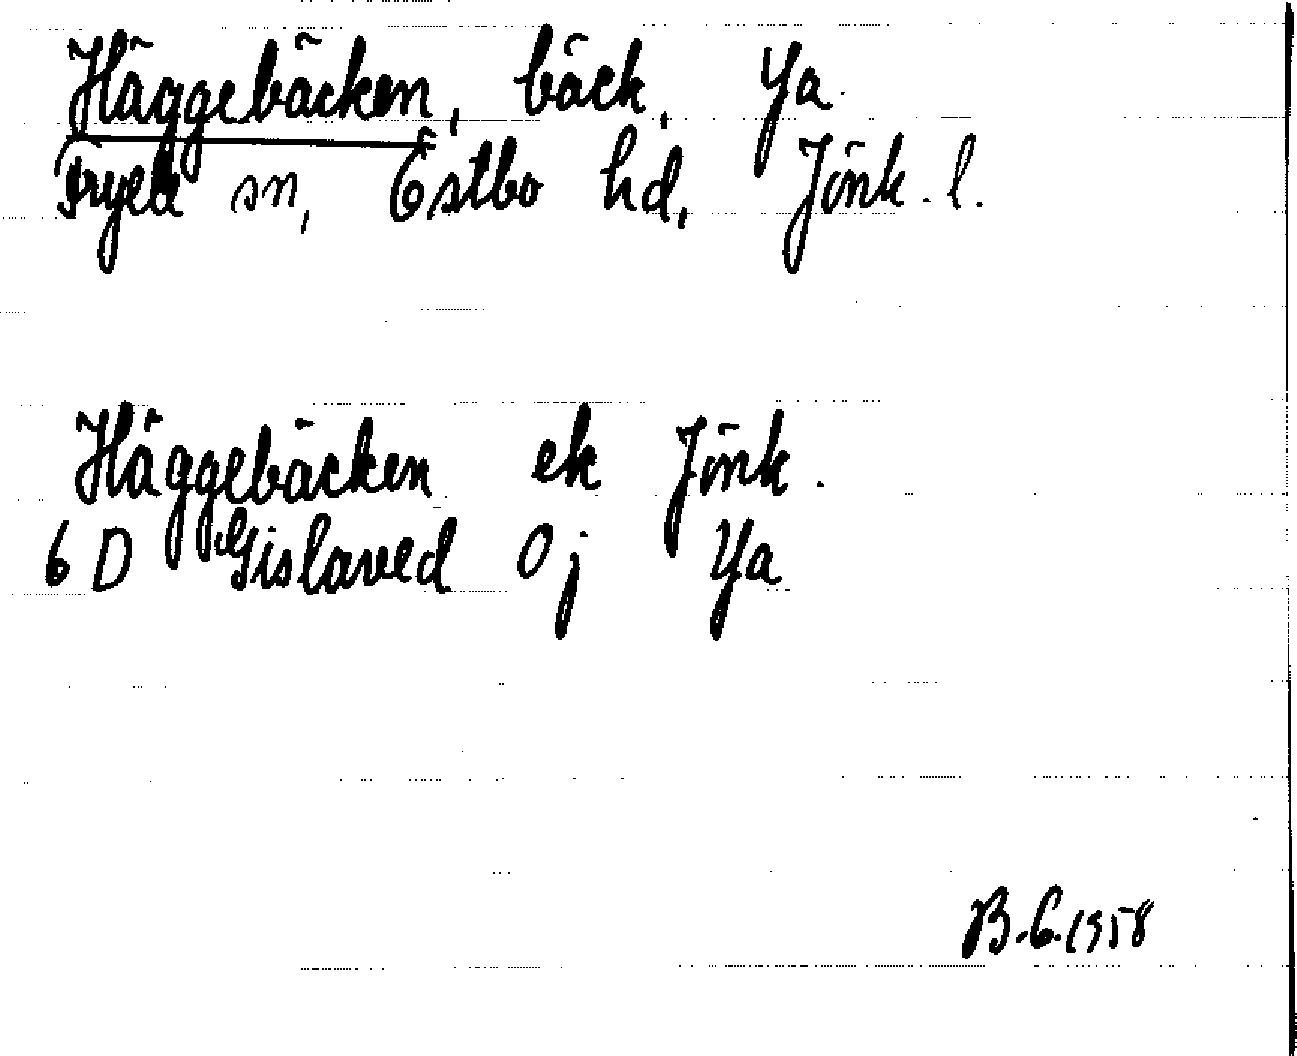 Häggebäcken, bäck, Ya.
Fryele sn, Östbo hd, Jönk. l.
Häggebäcken ek Jönk.
6 D Gislaved 0j Ya
B.G.1958